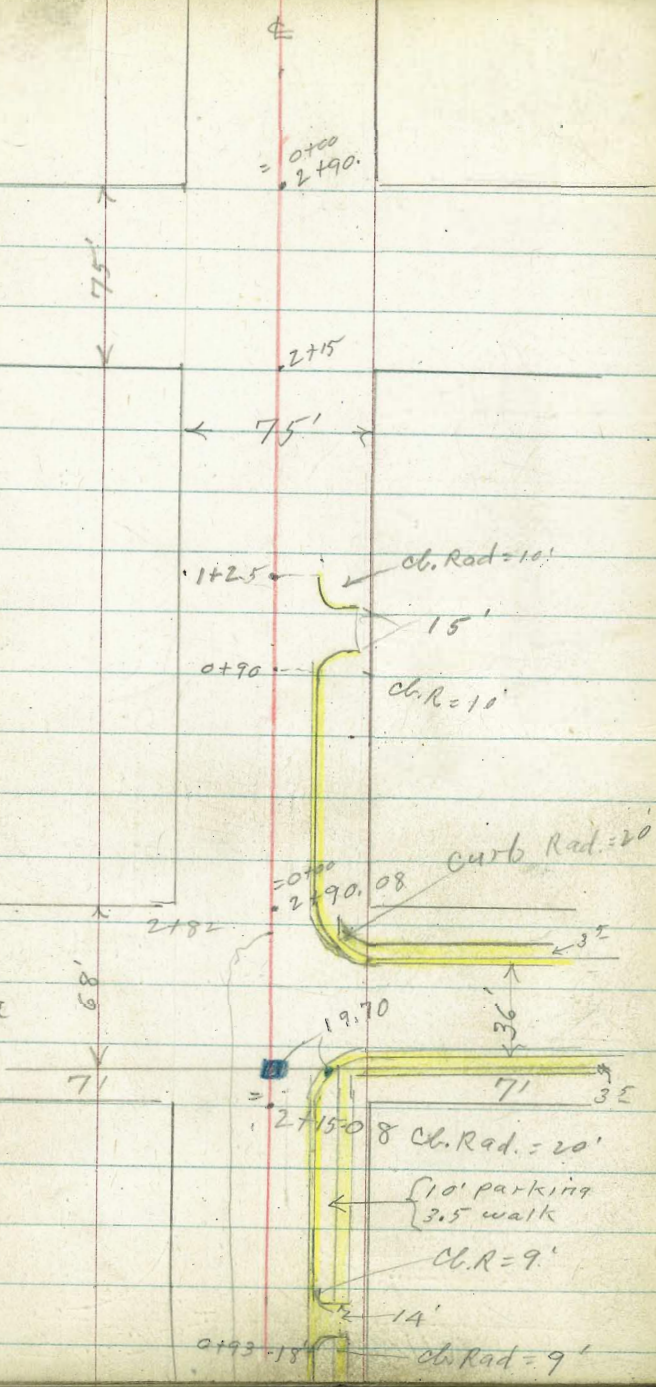 ℄
0+00
= 2+90.
75'
2+15
75'
1+25
cb. Rad = 10'
15'
0+90
cb. R = 10'
curb Rad. = 20'
= 0+00
2+90.08
2+82
3 5
68'
36'
19.70
71
7'
3 5
=
2+15.08
Cb. Rad. = 20'
10' parking
3.5 walk
Cb. R = 9'
14'
0+93
18'
cb. Rad = 9'